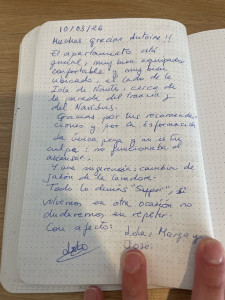 10/03/26
Muchas gracias Antoine!!
El apartamento está
genial, muy bien equipado
confortable y muy bien
ubicado, al lado de la
Isla de Nantes, cerca de
la parada del tranvía y
del Navibus.
Gracias por tus recomenda-
ciones y por la información
La única pena y no es tu
culpa: no funcionaba el
ascensor.
Y una sugerencia: cambiar de
jabón de la lavadora.
Todo lo demás "Super", si
volvemos en otra ocasión no
dudaremos en repetir.
Con afecto:
Lola, Marga y
Jose.